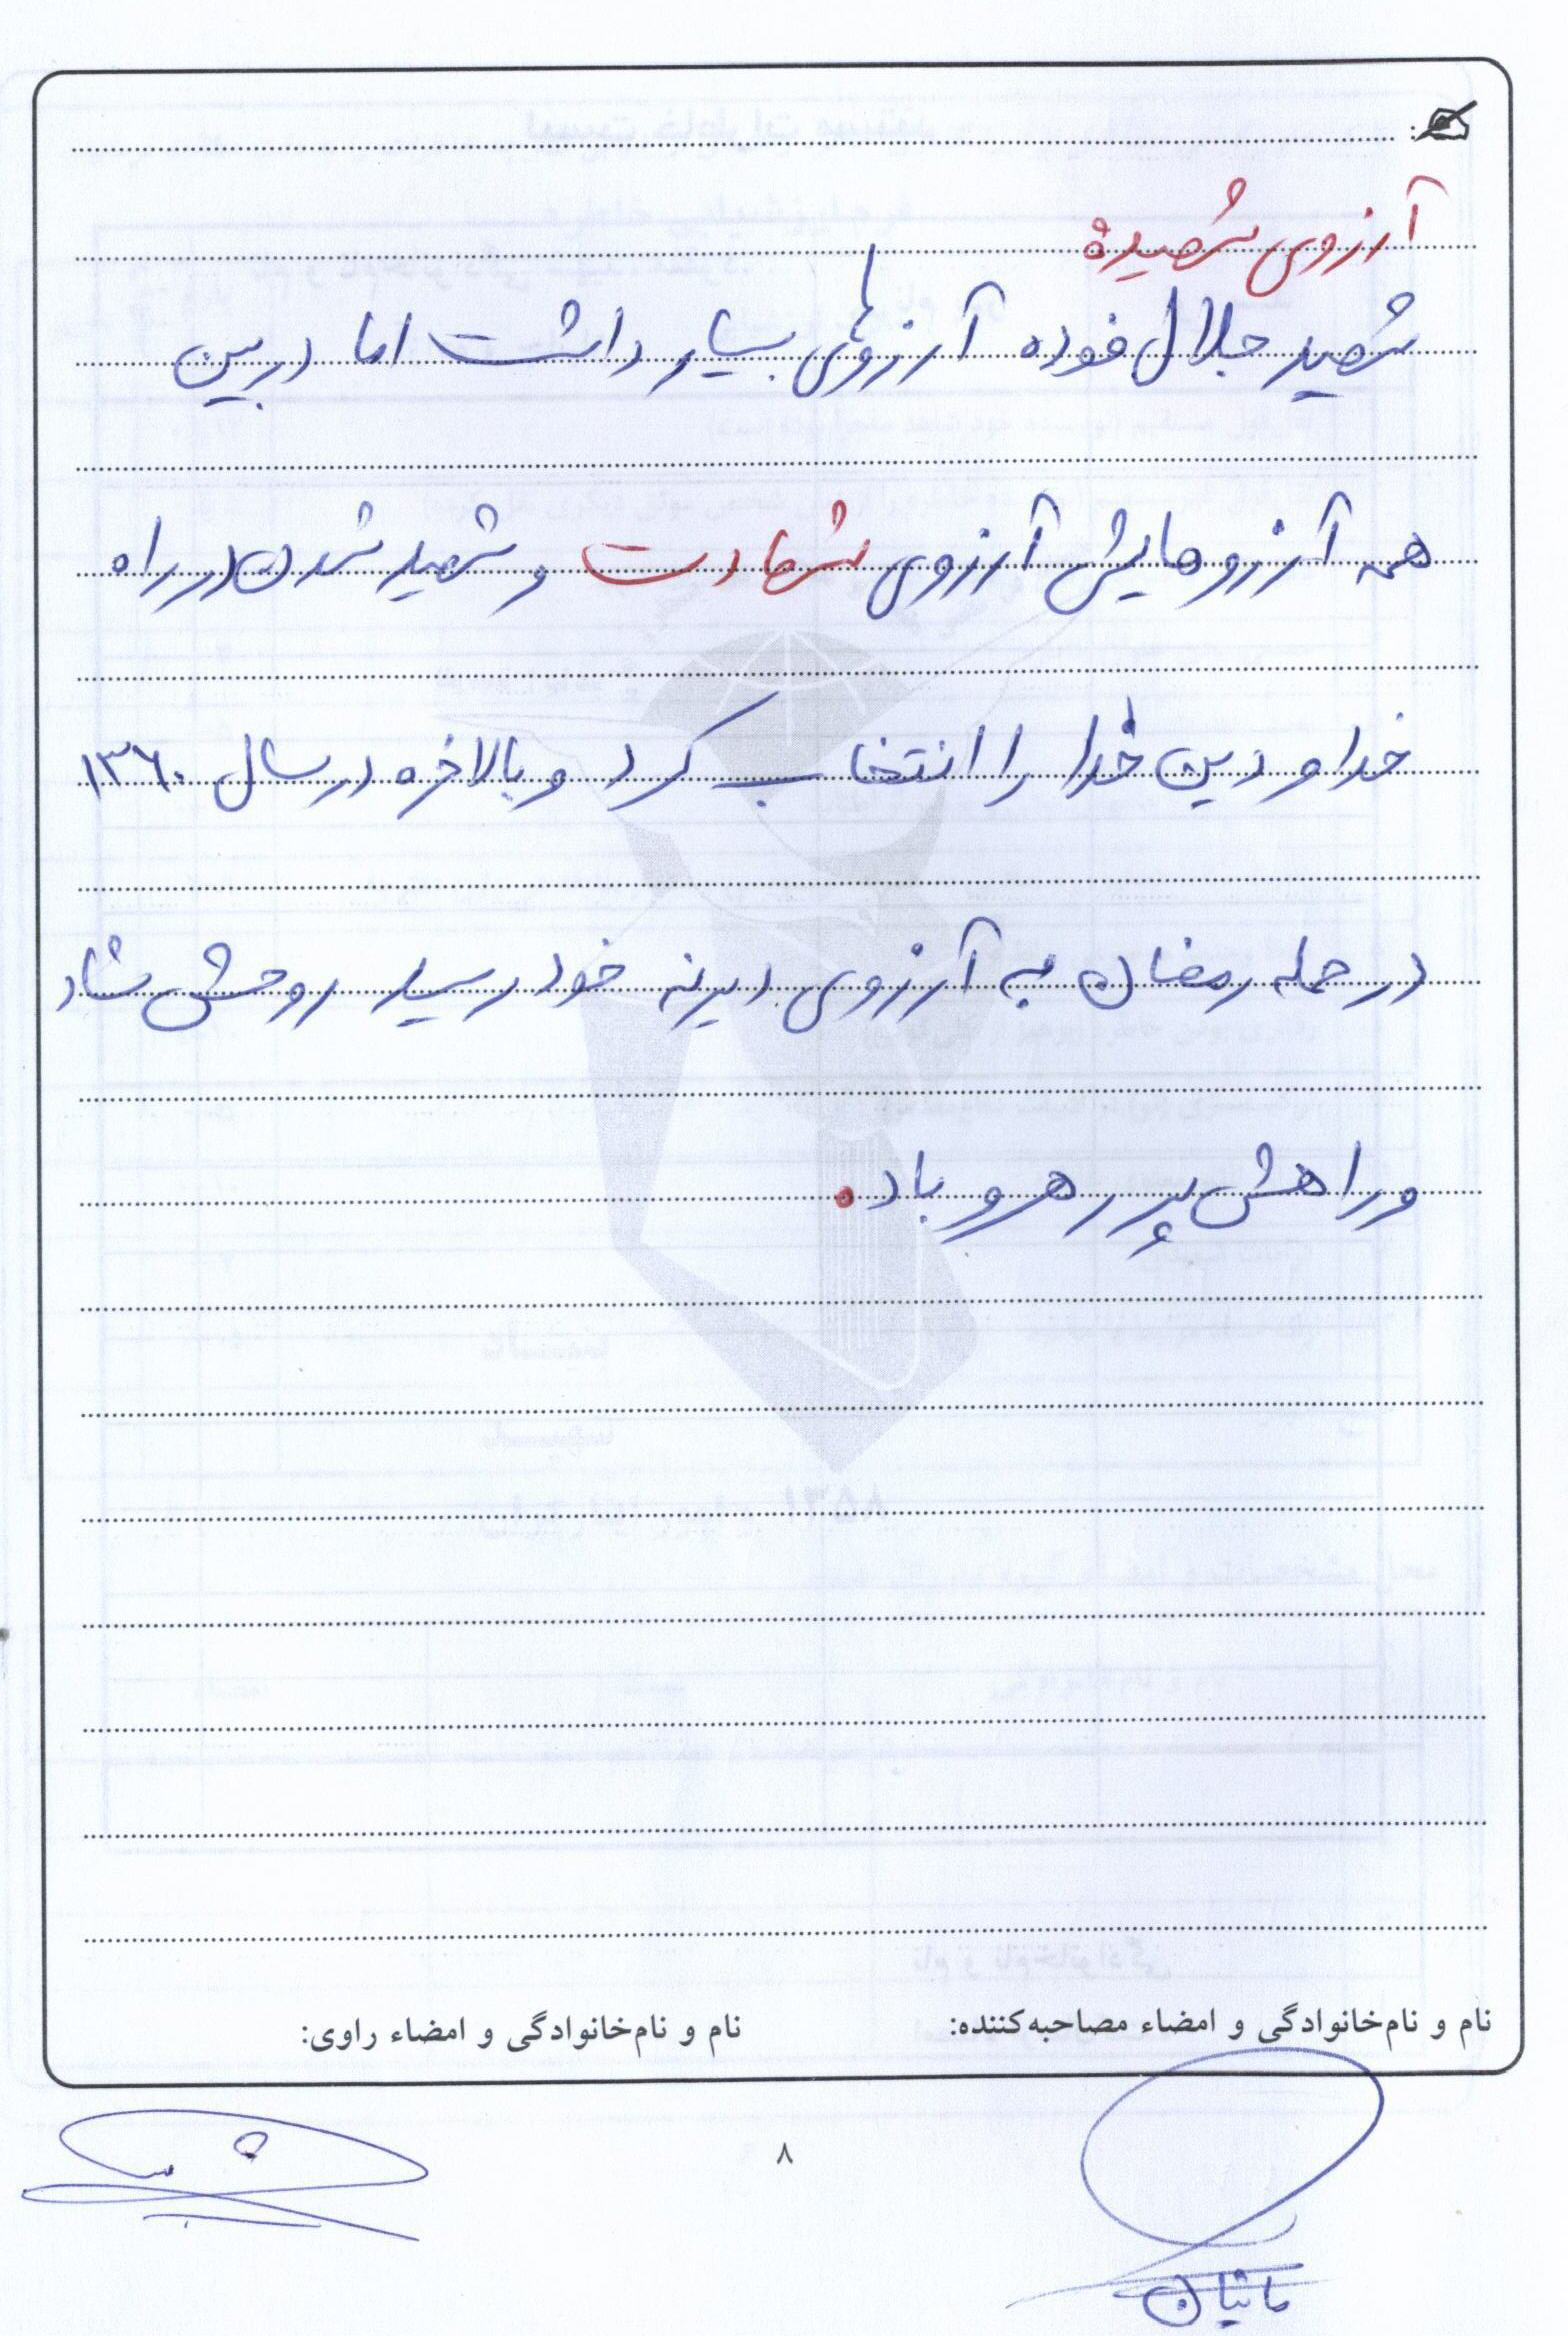 آرزوی شهید:
شهید جلال فوده آرزوهای بسیار داشت اما در بین
همه آرزوهایش آرزوی شهادت و شهید شدن در راه
خدا و دین خدا را انتخاب کرد و بالاخره در سال ۱۳۶۰
در حمله رمضان به آرزوی دیرینه خود رسید روحش شاد
و راهش پر رهرو باد.
نام و نام‌خانوادگی و امضاء مصاحبه‌کننده:
نام و نام‌خانوادگی و امضاء راوی:
۸